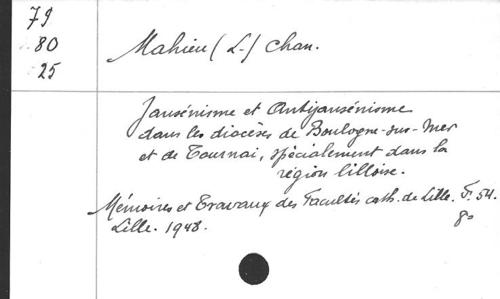 79
80
25
Mahieu (L.) chan.
Jansénisme et Antijansénisme
dans les diocèses de Boulogne-sur-Mer
et de Tournai, spécialement dans la
région lilloise.
Mémoires et Travaux des Facultés cath. de Lille. F. 54.
Lille. 1948. 8º